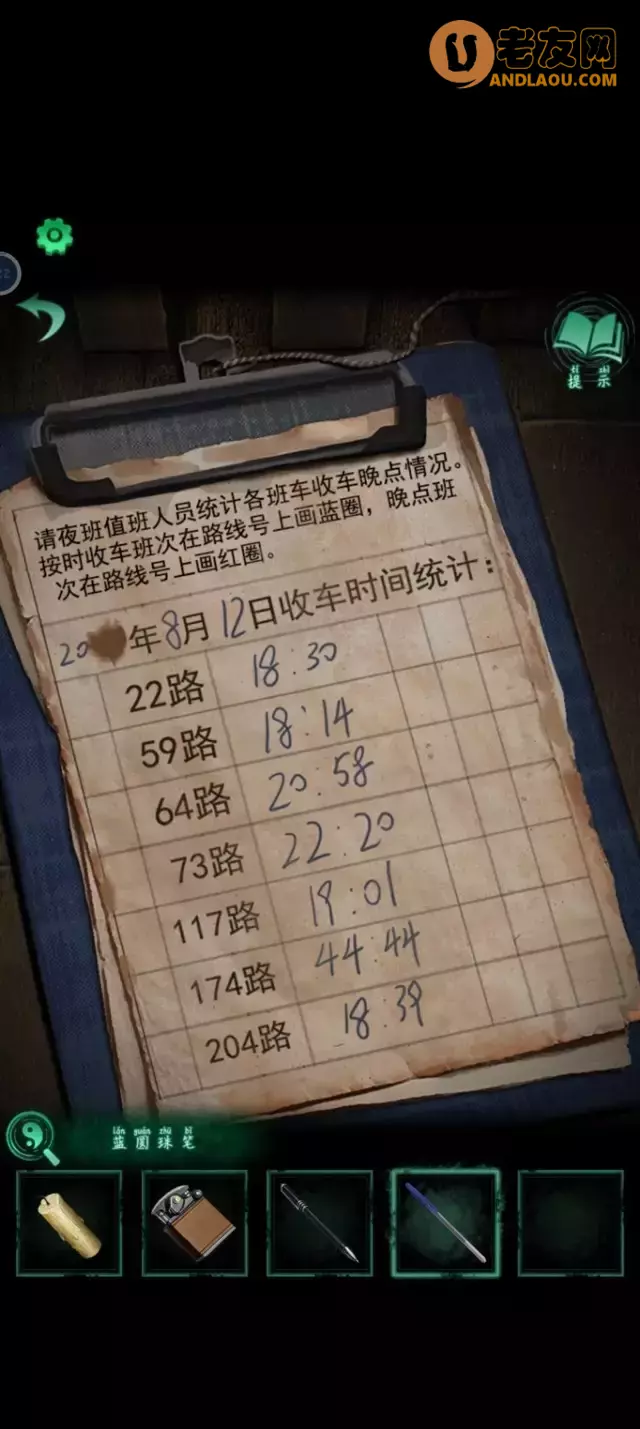 老友网
ANDLAOU.COM
22
tí shì
提示
请夜班值班人员统计各班车收车晚点情况。
按时收车班次在路线号上画蓝圈，晚点班
次在路线号上画红圈。
20 年8月12日收车时间统计：
22路 18:30
59路 18:14
64路 20:58
73路 22:20
117路 19:01
174路 44:44
204路 18:39
lán yuán zhū bǐ
蓝圆珠笔